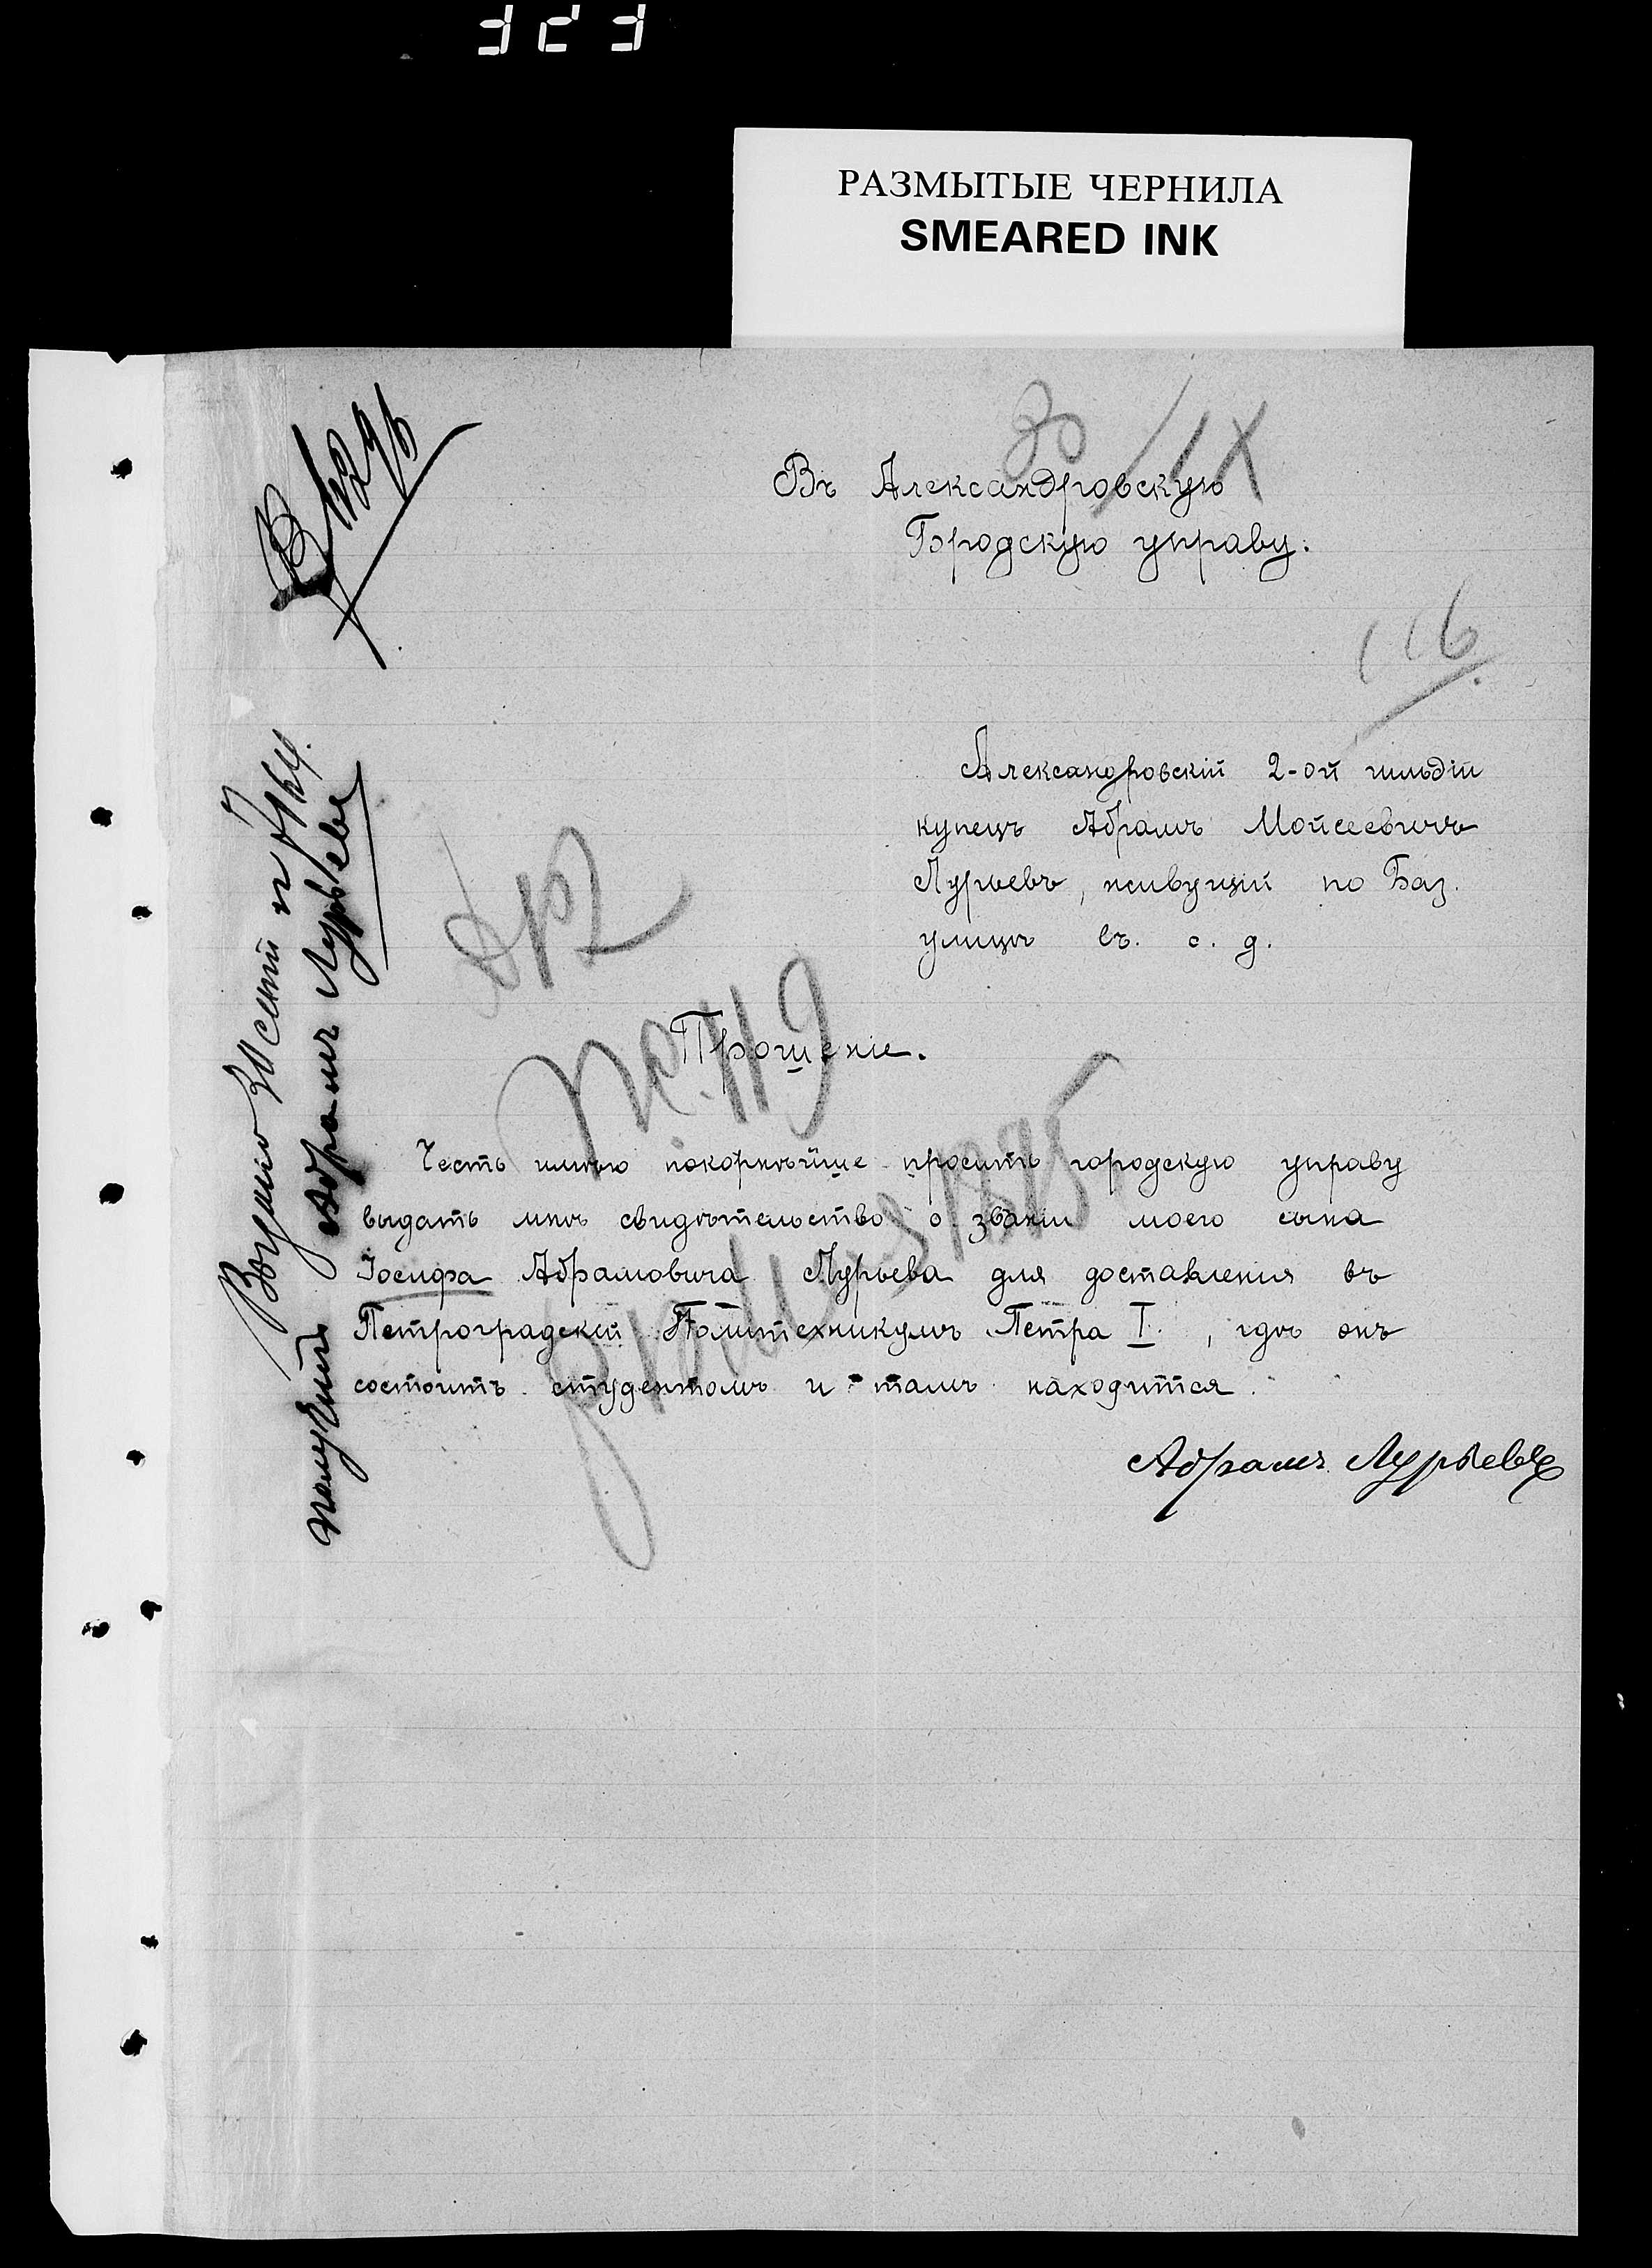 РАЗМЫТЫЕ ЧЕРНИЛА
SMEARED INK
30/IX
Въ Александровскую
Городскую управу.
116
Александровскій 2-ой гильдіи
купецъ Абрамъ Мойсеевичъ
Лурьевъ, живущій по Баз.
улицѣ въ. с. д.
№ 119
Прошеніе.
Честь имѣю покорнѣйше просить городскую управу
выдать мнѣ свидѣтельство о званіи моего сына
Іосифа Абрамовича Лурьева для доставленія въ
Петроградскій Политехникумъ Петра I, гдѣ онъ
состоитъ студентомъ и тамъ находится.
Абрамъ Лурьевъ
30 сент
получилъ Абрамъ Лурьевъ